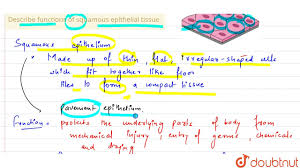 Describe functions of squamous ephthelial tissue.
Squamous epithelium
• Made up of thin, flat, irregular-shaped cells
which fit together like floor
tiles to form a compact tissue
Pavement epithelium.
Function:- protects the underlying parts of body from
mechanical injury, entry of germs, chemicals
and drying
doubtnut